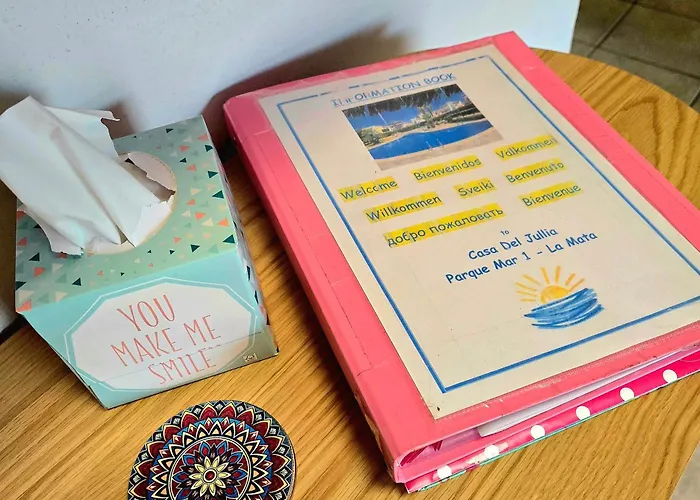 YOU
MAKE ME
SMILE
INFORMATION BOOK
Welcome Bienvenidos Välkommen
Willkommen Sveiki Benvenuto
добро пожаловать Bienvenue
To
Casa Del Jullia
Parque Mar 1 - La Mata